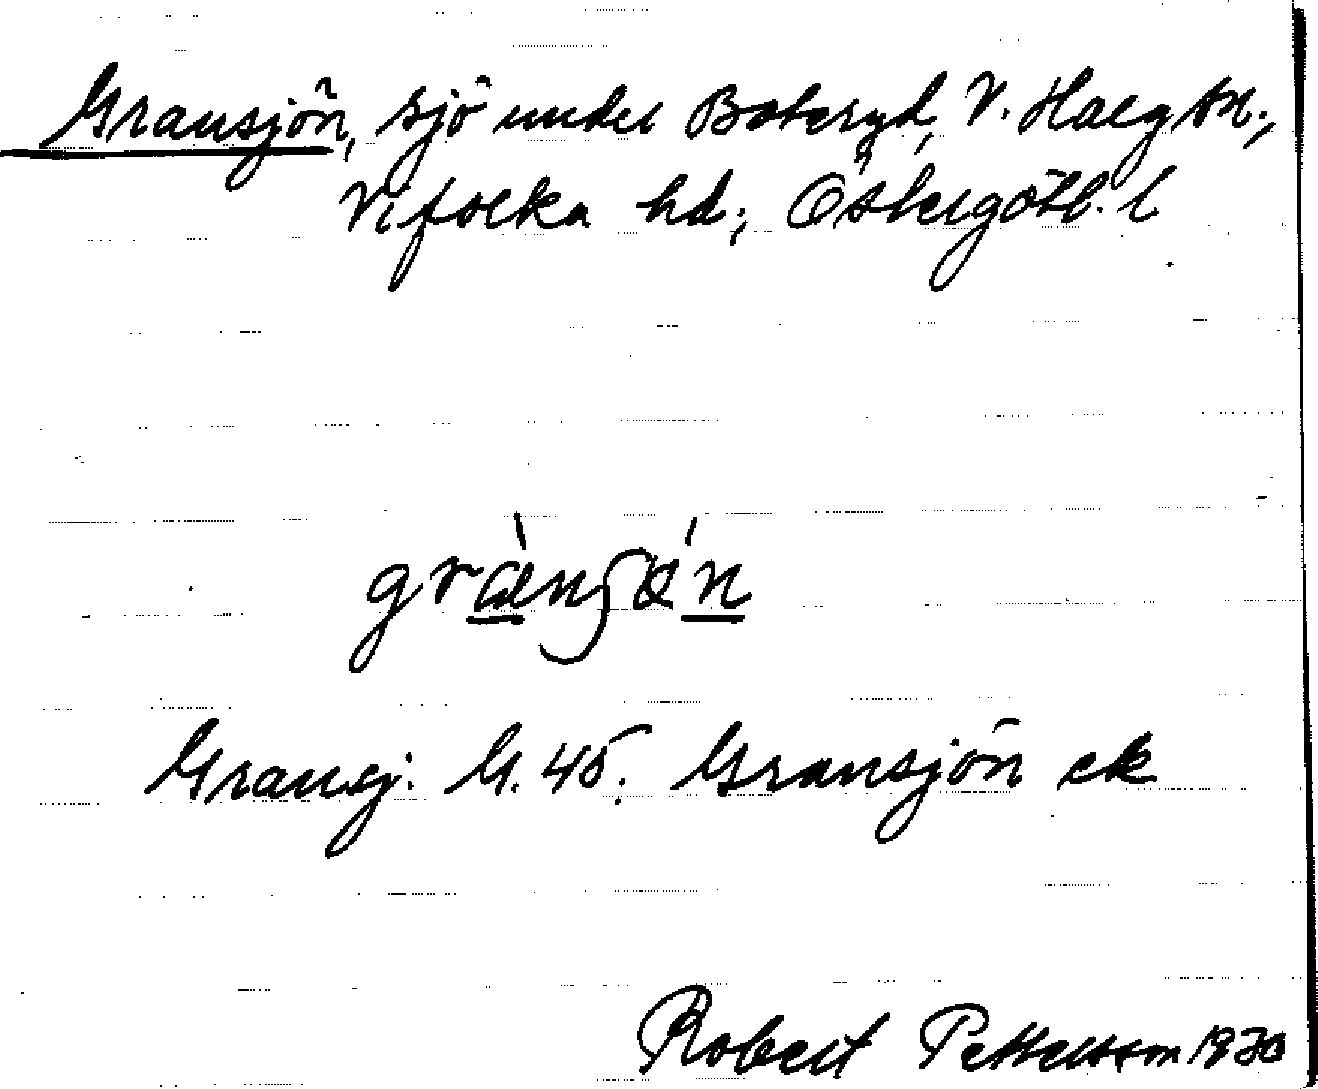 Gransjön, sjö under Boteryd, V. Harg sn.,
Vifolka hd., Östergötl. l.
Gransj. G. 45. Gransjön ek
Robert Pettersson 1930